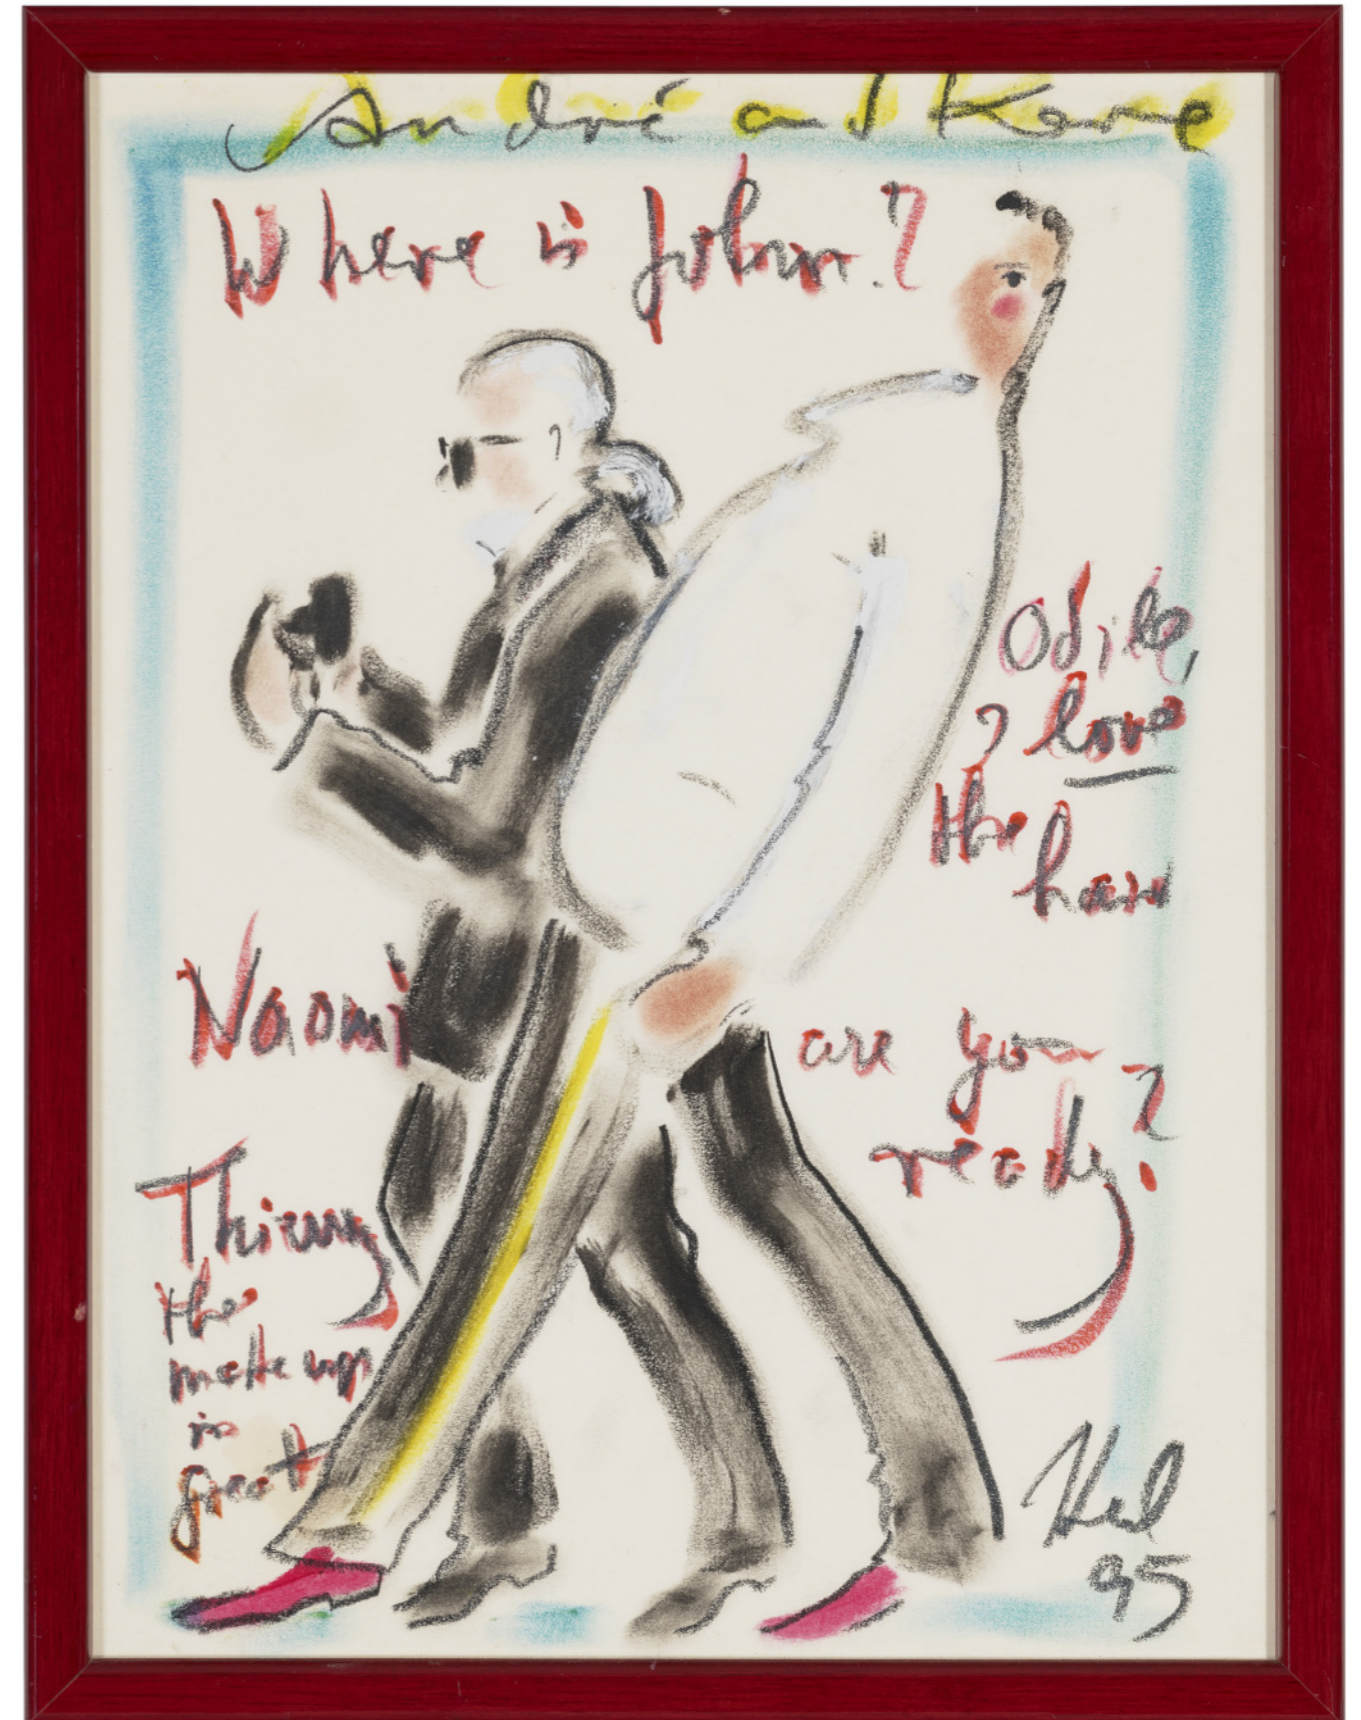 André and
Where is John?
Odile,
I love
the
hair
Naomi are you
ready?
Thierry
the
make up
is
great
95